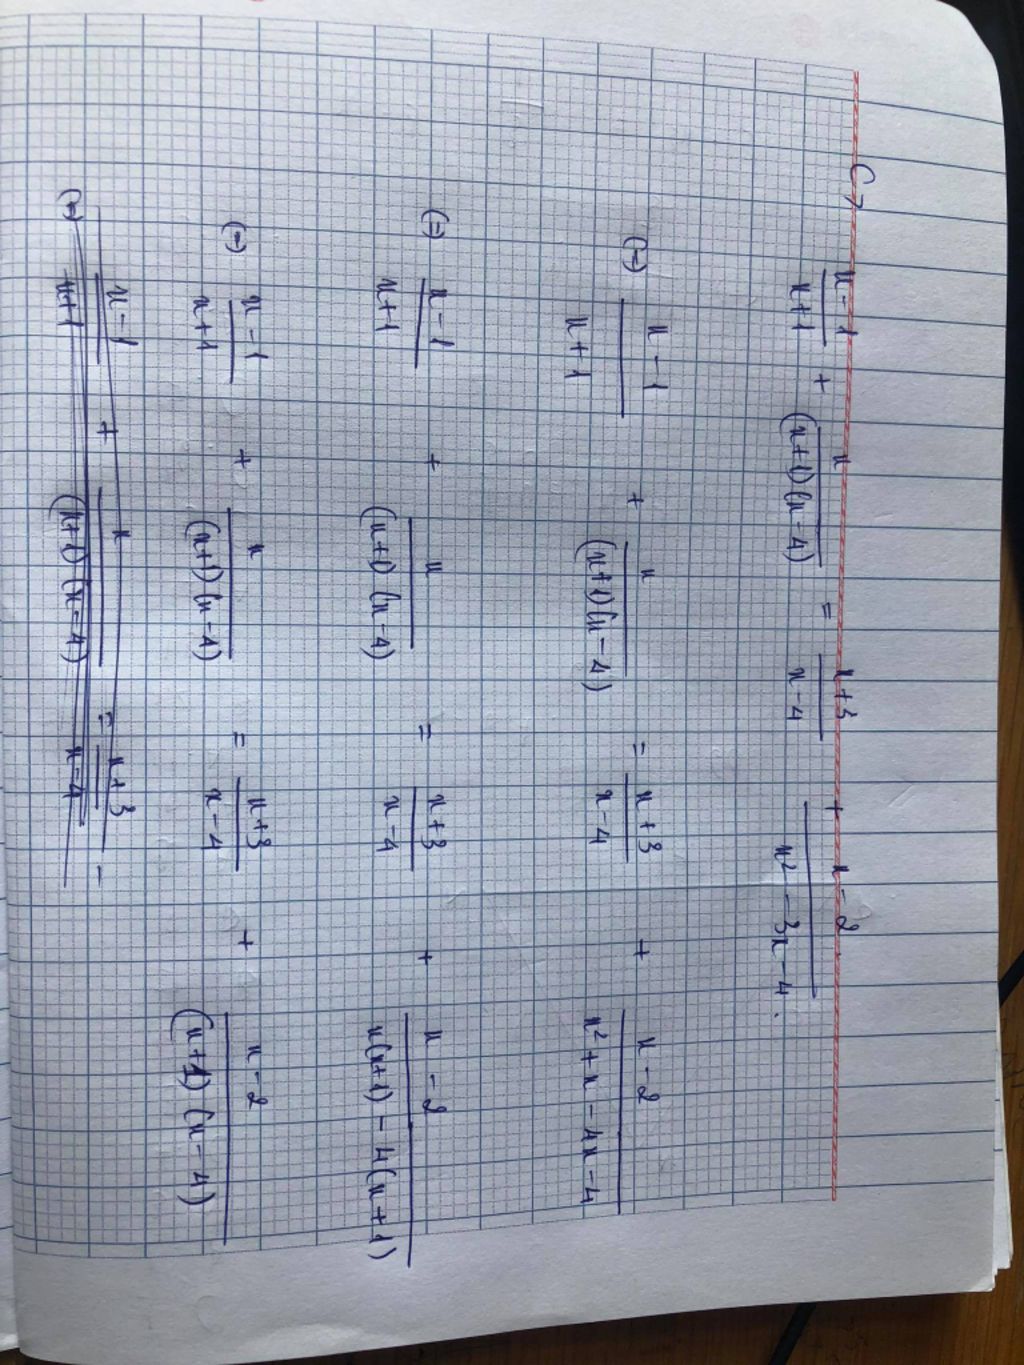 C7 (x-1)/(x+1) + x/((x+1)(x-4)) = (x+3)/(x-4) + (x-2)/(x² - 3x - 4).
(=) (x-1)/(x+1) + x/((x+1)(x-4)) = (x+3)/(x-4) + (x-2)/(x² + x - 4x - 4)
(=) (x-1)/(x+1) + x/((x+1)(x-4)) = (x+3)/(x-4) + (x-2)/(x(x+1) - 4(x+1))
(=) (x-1)/(x+1) + x/((x+1)(x-4)) = (x+3)/(x-4) + (x-2)/((x+1)(x-4))
(=) (x-1)/(x+1) + x/((x+1)(x-4)) = (x+3)/(x-4) -